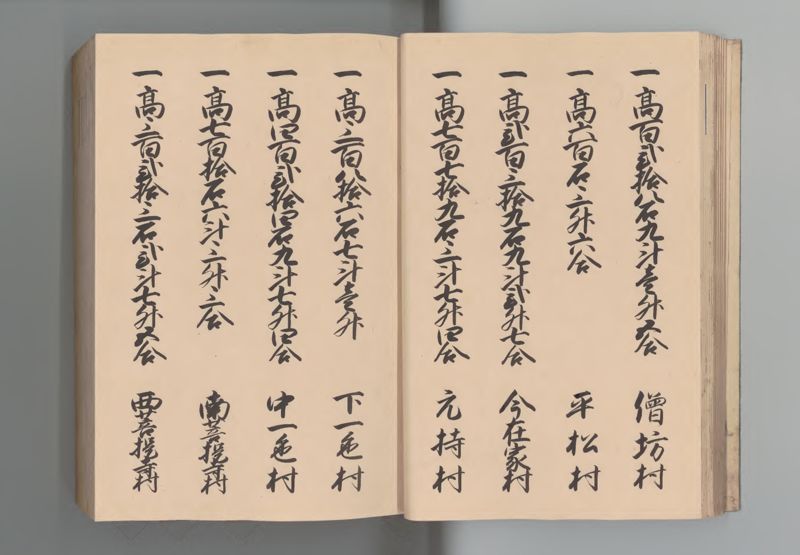 一高百弐拾八石九斗壱升五合 僧坊村
一高六百石三升六合 平松村
一高弐百三拾九石九斗弐升七合 今在家村
一高七百七拾九石三斗七升四合 元持村
一高三百八拾六石七斗壱升 下一色村
一高四百弐拾四石九斗七升四合 中一色村
一高七百拾石六斗三升三合 南菩提寺村
一高三百弐拾三石弐斗七升五合 西菩提寺村